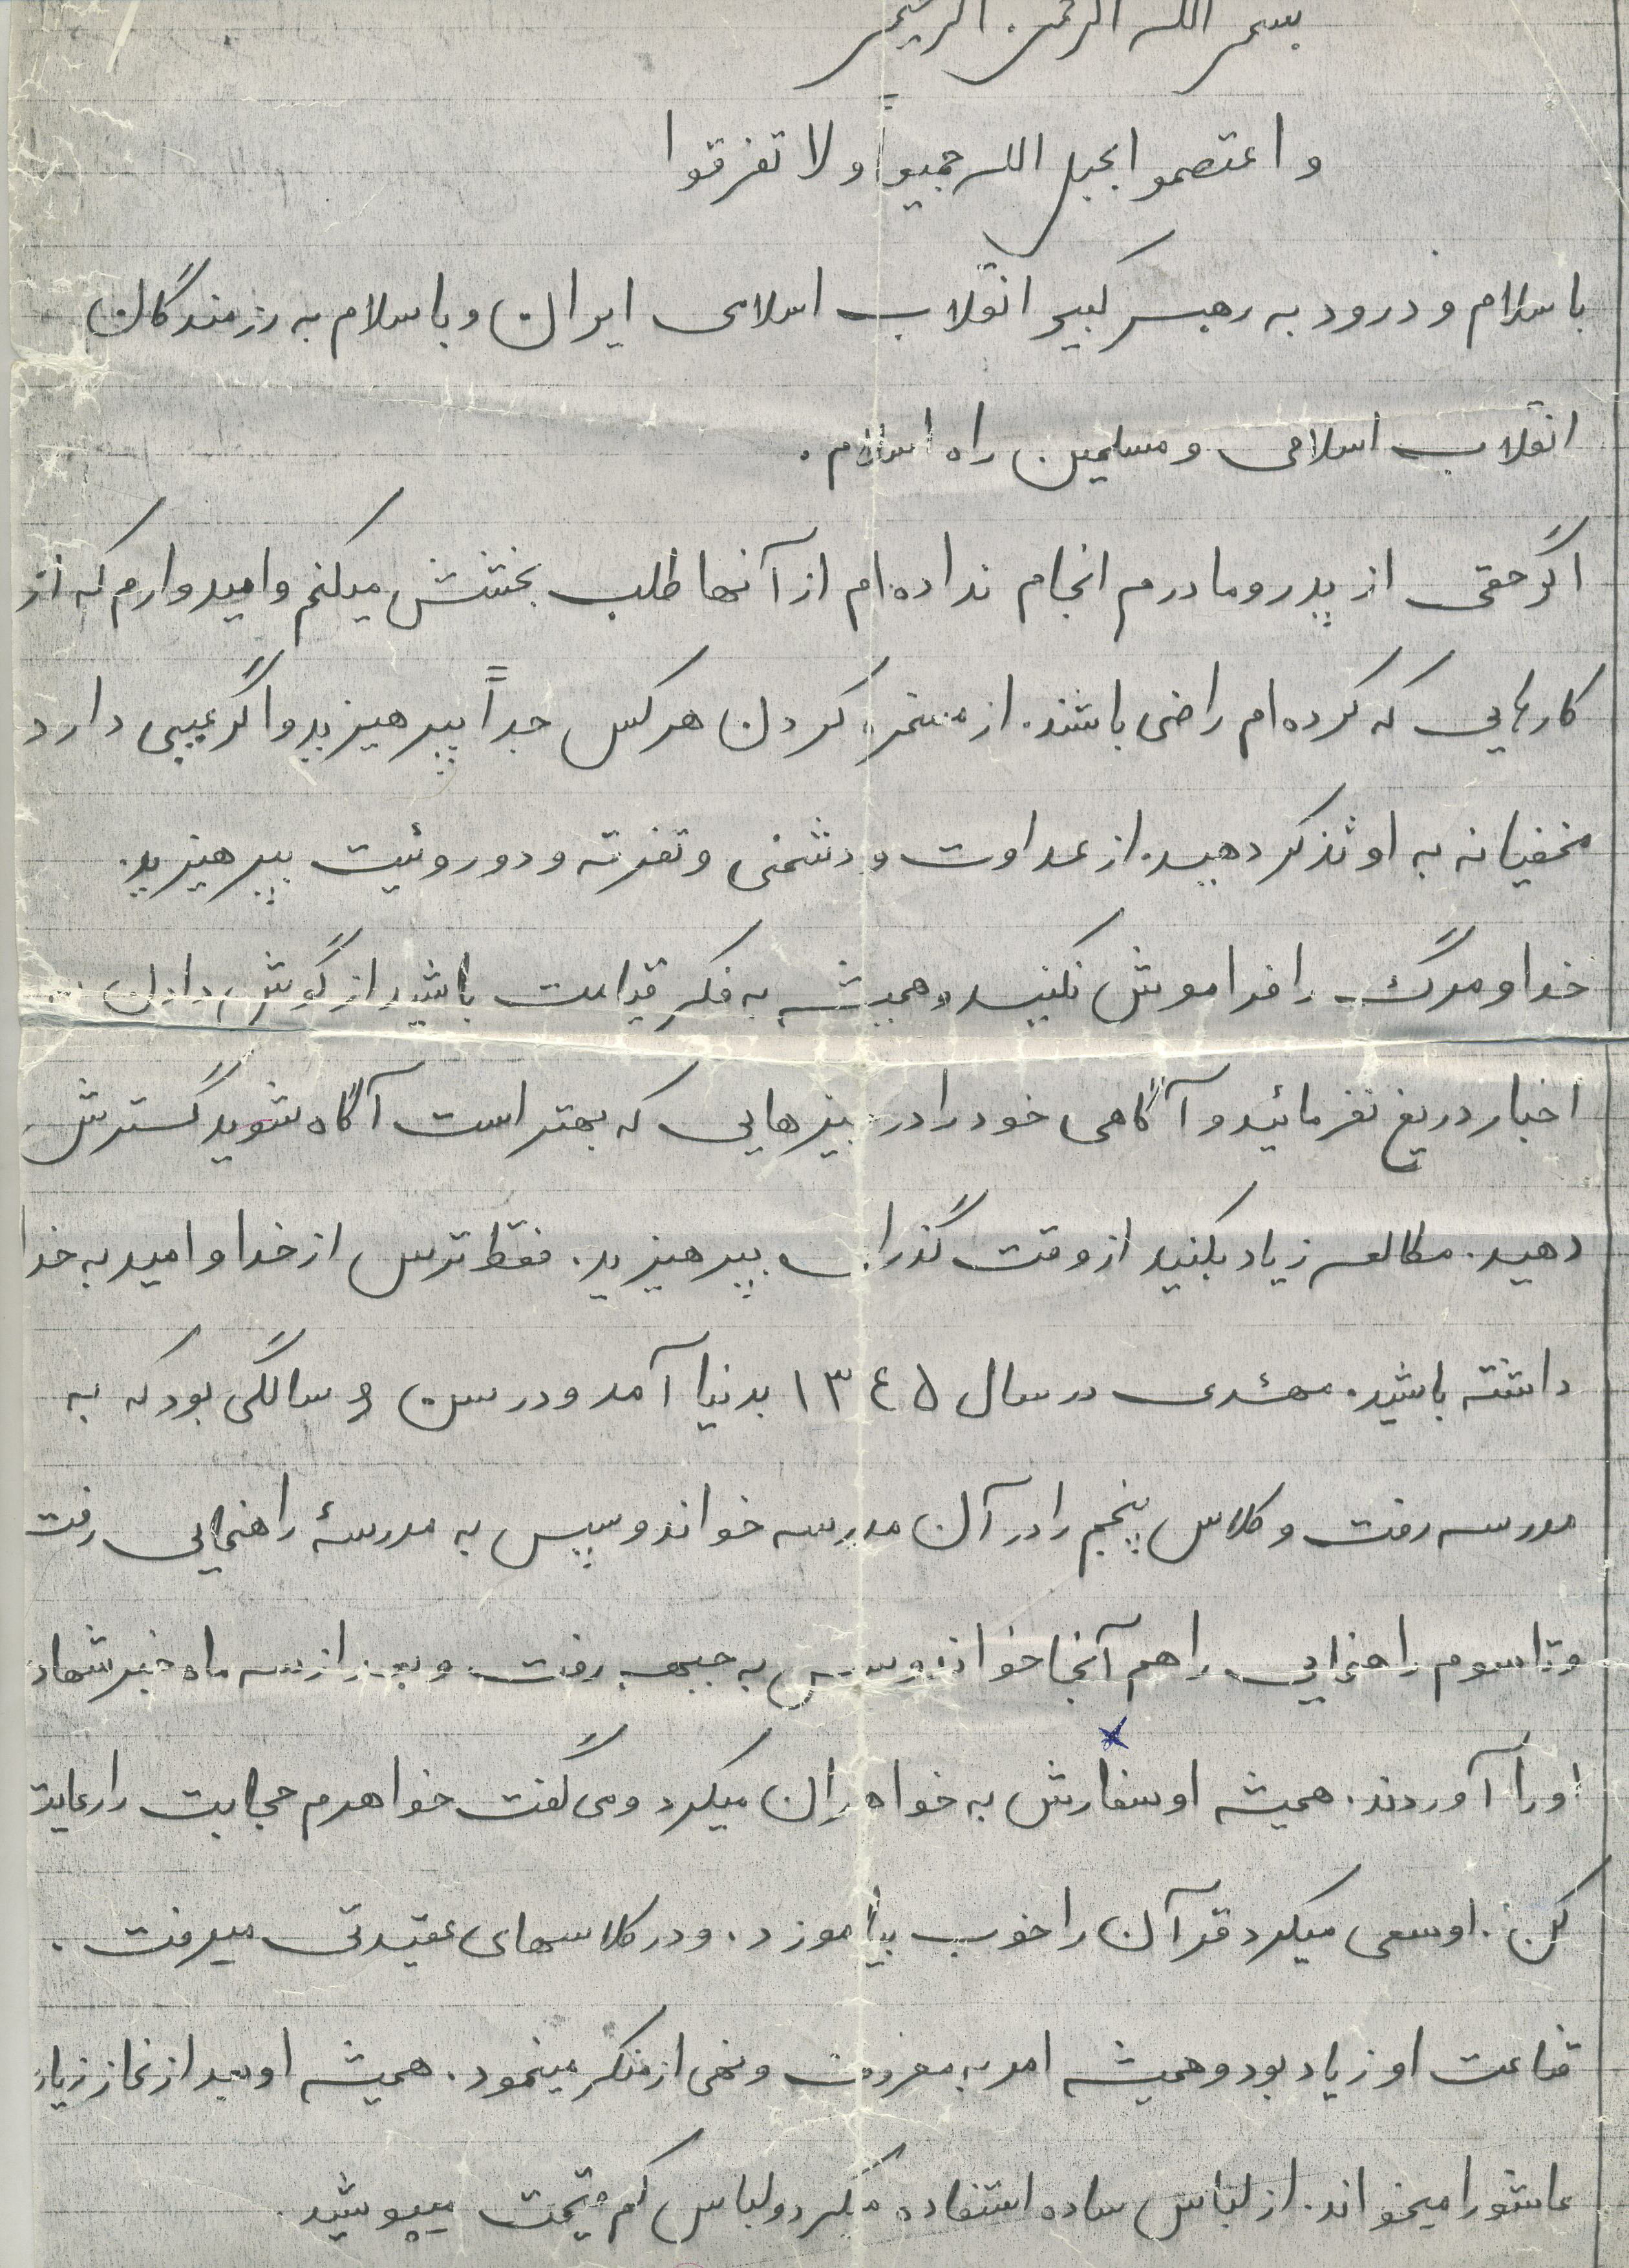 بسم الله الرحمن الرحیم
واعتصموا بحبل الله جمیعاً ولا تفرقوا
با سلام و درود به رهبر کبیر انقلاب اسلامی ایران و با سلام به رزمندگان
انقلاب اسلامی و مسلمین راه اسلام.
اگر حقی از پدر و مادرم انجام نداده‌ام از آنها طلب بخشش میکنم و امیدوارم که از
کارهایی که کرده‌ام راضی باشند. از مسخره کردن هر کس جداً بپرهیزید و اگر عیبی دارد
مخفیانه به او تذکر دهید. از عداوت و دشمنی و تفرقه و دوروئیت بپرهیزید.
خدا و مرگ را فراموش نکنید و همیشه به فکر قیامت باشید از گوش دادن به
اخبار دریغ نفرمائید و آگاهی خود را در چیزهایی که بهتر است آگاه شوید گسترش
دهید. مطالعه زیاد بکنید از وقت گذرانی بپرهیزید. فقط ترس از خدا و امید به خدا
داشته باشید. مهدی در سال ۱۳٤۵ بدنیا آمد و در سن ۶ سالگی بود که به
مدرسه رفت و کلاس پنجم را در آن مدرسه خواند و سپس به مدرسهٔ راهنمایی رفت
و تا سوم راهنمایی را هم آنجا خواند و سپس به جبهه رفت و بعد از سه ماه خبر شهادت
او را آوردند. همیشه او سفارش به خواهران میکرد و می گفت خواهرم حجابت را رعایت
کن. او سعی میکرد قرآن را خوب بیآموزد. و در کلاسهای عقیدتی میرفت.
قناعت او زیاد بود و همیشه امر به معروف و نهی از منکر مینمود. همیشه او بعد از نماز زیارت
عاشورا میخواند. از لباس ساده استفاده میکرد و لباس کم قیمت میپوشید.